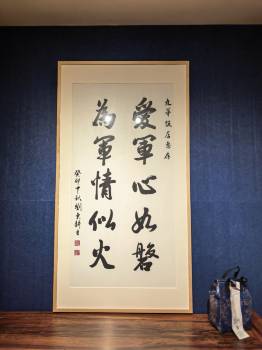 九華飯店惠存
愛軍心如磐
為軍情似火
癸卯中秋劉書